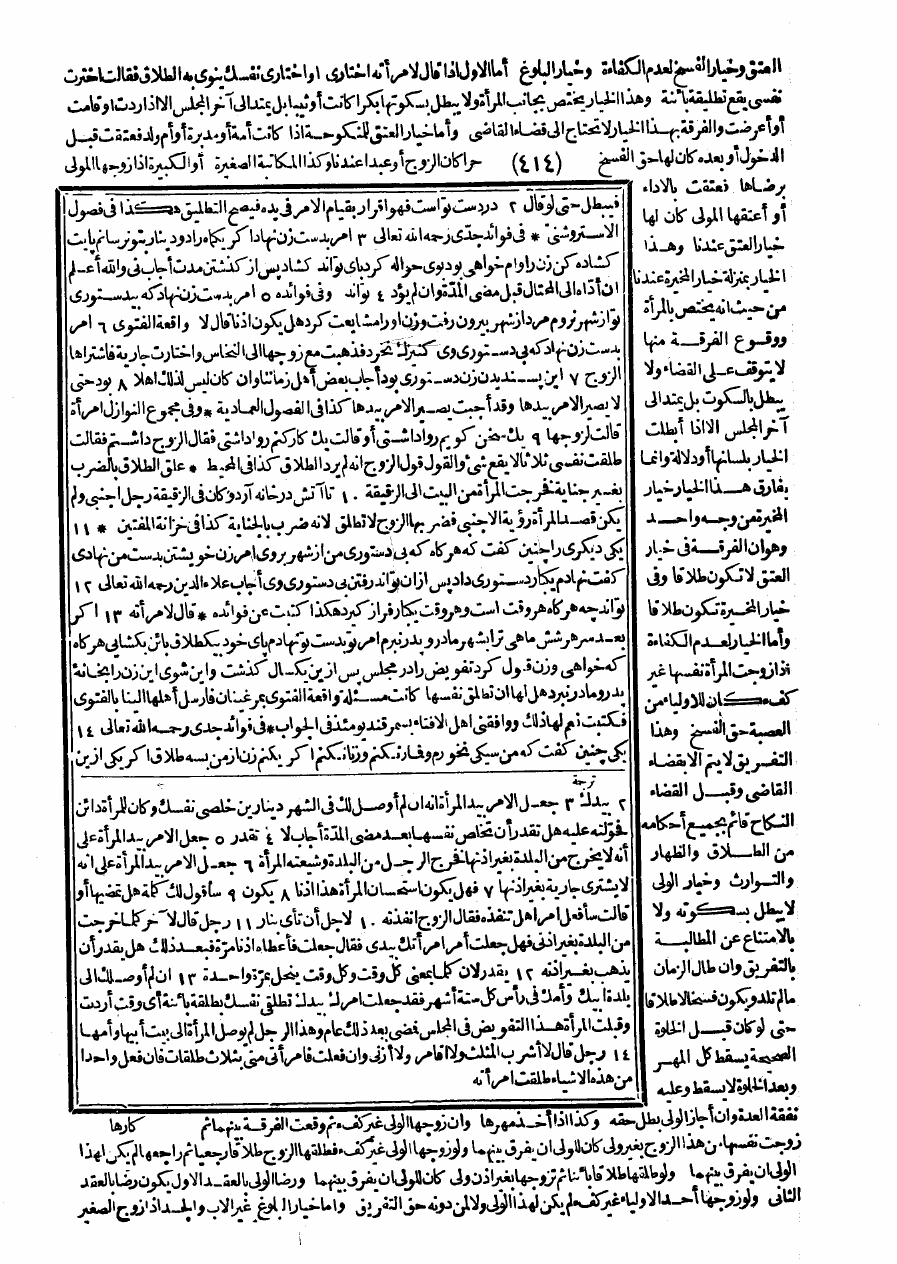 العتق وخيار الفسخ لعدم الكفاءة وخيار البلوغ أما الاول اذا قال لامرأته اختارى او اختارى نفسك ينوى به الطلاق فقالت اخترت
نفسى يقع تطليقة بائنة وهذا الخيار يختص بجانب المرأة ولا يبطل بسكوتها بكرا كانت أو ثيبا بل يمتد الى آخر المجلس الا اذا ردت او قامت
أو أعرضت والفرقة بهذا الخيار لا تحتاج الى قضاء القاضى وأما خيار العتق للمنكوحة اذا كانت أمة أو مدبرة أو أم ولد فعتقت قبل
الدخول أو بعده كان لها حق الفسخ (٤١٤) حرا كان الزوج أو عبدا عندنا وكذا المكاتبة الصغيرة أو الكبيرة اذا زوجها المولى
برضاها فعتقت بالاداء
أو أعتقها المولى كان لها
خيار العتق عندنا وهذا
الخيار بمنزلة خيار المخيرة عندنا
من حيث انه يختص بالمرأة
ووقوع الفرقة منها
لا يتوقف على القضاء ولا
يبطل بالسكوت بل يمتد الى
آخر المجلس الا اذا أبطلت
الخيار بلسانها أو دلالة وانما
يفارق هذا الخيار خيار
المخيرة من وجه واحد
وهو ان الفرقة فى خيار
العتق لا تكون طلاقا وفى
خيار المخيرة تكون طلاقا
وأما الخيار لعدم الكفاءة
اذا زوجت المرأة نفسها غير
كفء كان للاولياء من
العصبة حق الفسخ وهذا
التفريق لا يتم الا بقضاء
القاضى وقبل القضاء
النكاح قائم بجميع أحكامه
من الطلاق والظهار
والتوارث وخيار الولى
لا يبطل بسكوته ولا
بالامتناع عن المطالبة
بالتفريق وان طال الزمان
مالم تلد ويكون فسخا لا طلاقا
حتى لو كان قبل الخلوة
الصحيحة يسقط كل المهر
وبعد الخلوة لا يسقط وعليه
فيبطل حتى لو قال ٢ در دست تو است فهو اقرار بقيام الامر فى يده فيصح التطليق هكذا فى فصول
الاستروشنى * فى فوائد جدى رحمه الله تعالى ٣ امر بدست زن نهاد اكر يكماه را دو دينار بتو نرسانم پايت
كشاده كن زن را وام خواهى بود بوى حواله كرد پاى تواند كشاد پس از كذشتن مدت أجاب نى والله أعلم
ان أداه الى المحتال قبل مضى المدة وان لم يؤد ٤ تواند وفى فوائده ٥ امر بدست زن نهاد كه بى دستورى
تو از شهر نروم مرد از شهر بيرون رفت وزن او را مشايعت كرد هل يكون اذنا قال لا واقعة الفتوى ٦ امر
بدست زن نهاد كه بى دستورى وى كنيزك نخرد فذهبت مع زوجها الى النخاس واختارت جارية فاشتراها
الزوج ٧ اين پسنديدن زن دستورى بود أجاب بعض أهل زماننا وان كان ليس لذلك اهلا ٨ بود حتى
لا يصير الامر بيدها وقد أجبت يصير الامر بيدها كذا فى الفصول العمادية * وفى مجموع النوازل امرأة
قالت لزوجها ٩ يك سخن كويم روا داشتى أو قالت يك كار كنم روا داشتى فقال الزوج داشتم فقالت
طلقت نفسى ثلاثا لا يقع شئ والقول قول الزوج انه لم يرد الطلاق كذا فى المحيط * علق الطلاق بالضرب
بغير جناية فخرجت المرأة من البيت الى الرقيقة ١٠ تا آتش در خانه آرد وكان فى الرقيقة رجل اجنبى ولم
يكن قصد المرأة رؤية الاجنبى فضربها الزوج لا تطلق لانه ضرب بالجناية كذا فى خزانة المفتين * ١١
يكى ديكرى را چنين كفت كه هركاه كه بى دستورى من از شهر بروى امر زن خويشتن بدست من نهادى
كفت نهادم يكبار دستورى داد پس ازان تواند رفتن بى دستورى وى أجاب علاء الدين رحمه الله تعالى ١٢
تواند چه هركاه هر وقت است وهر وقت يكبار فرا كيرد هكذا كتبت عن فوائده * قال لامرأته ١٣ اكر
بعد سر هر شش ماهى ترا بشهر مادر وپدر نبرم امر تو بدست تو نهادم پاى خود بيكطلاق بائن بكشايى هركاه
كه خواهى وزن قبول كرد تفويض را در مجلس پس ازين يكسال كذشت واين شوى اين زن را بخانه
پدر ومادر نبرد هل لها ان تطلق نفسها كانت مسئلة واقعة الفتوى بمرغينان فارسل أهلها الينا بالفتوى
فكتبت نعم لها ذلك ووافقنى اهل الافتاء بسمرقند يومئذ فى الجواب * فى فوائد جدى رحمه الله تعالى ١٤
يكى چنين كفت كه من سيكى نخورم وقمار نكنم وزنا نكنم اكر بكنم زن از من بسه طلاق اكر يكى ازين
ترجمة
٢ بيدك ٣ جعل الامر بيد المرأة انه ان لم أوصل لك فى الشهر دينارين خلصى نفسك وكان للمرأة دائن
فحولته عليه هل تقدر أن تخلص نفسها بعد مضى المدة أجاب لا ٤ تقدر ٥ جعل الامر بيد المرأة على
أنه لا يخرج من البلدة بغير اذنها فخرج الرجل من البلدة وشيعته المرأة ٦ جعل الامر بيد المرأة على انه
لا يشترى جارية بغير اذنها ٧ فهل يكون استحسان المرأة هذا اذنا ٨ يكون ٩ سأقول لك كلمة هل تمضيها أو
قالت سأفعل امرا هل تنفذه فقال الزوج انفذته ١٠ لاجل أن تأتى بنار ١١ رجل قال لآخر كلما خرجت
من البلدة بغير اذنى فهل جعلت أمر امرأتك بيدى فقال جعلت فأعطاه اذنا مرة فبعد ذلك هل يقدر أن
يذهب بغير اذنه ١٢ يقدر لان كلما بمعنى كل وقت وكل وقت ينحل بمرة واحدة ١٣ ان لم أوصلك الى
بلدة ابيك وأمك فى رأس كل ستة أشهر فقد جعلت امرك بيدك تطلقى نفسك بطلقة بائنة أى وقت أردت
وقبلت المرأة هذا التفويض فى المجلس فمضى بعد ذلك عام وهذا الرجل لم يوصل المرأة الى بيت أبيها وأمها
١٤ رجل قال لا أشرب المثلث ولا أقامر ولا أزنى وان فعلت فامرأتى منى بثلاث طلقات فان فعل واحدا
من هذه الاشياء طلقت امرأته
نفقة العدة وان أجاز الولى بطل حقه وكذا اذا أخذ مهرها وان زوجها الولى غير كفء ثم وقعت الفرقة بينهما ثم كارها
زوجت نفسها من هذا الزوج بغير ولى كان للولى ان يفرق بينهما ولو زوجها الولى غير كفء فطلقها الزوج طلاقا رجعيا ثم راجعها لم يكن لهذا
الولى ان يفرق بينهما ولو طلقها طلاقا بائنا ثم تزوجها بغير اذن ولى كان للولى ان يفرق بينهما ورضا الولى بالعقد الاول لا يكون رضا بالعقد
الثانى ولو زوجها أحد الاولياء غير كفء لم يكن لهذا الولى ولا لمن دونه حق التفريق واما خيار البلوغ غير الاب والجد اذا زوج الصغير